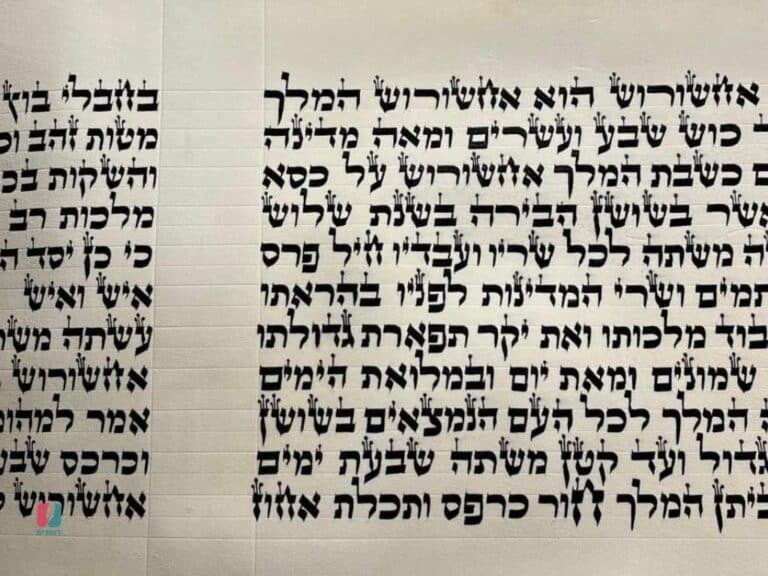 אחשורוש הוא אחשורוש המלך
ד כוש שבע ועשרים ומאה מדינה
ם כשבת המלך אחשורוש על כסא
אשר בשושן הבירה בשנת שלוש
ה משתה לכל שריו ועבדיו חיל פרס
תמים ושרי המדינות לפניו בהראתו
בוד מלכותו ואת יקר תפארת גדולתו
שמונים ומאת יום ובמלואת הימים
ה המלך לכל העם הנמצאים בשושן
גדול ועד קטן משתה שבעת ימים
ביתן המלך חור כרפס ותכלת אחוז
בחבלי בוץ
מטות זהב וכ
והשקות בכ
מלכות רב
כי כן יסד ה
איש ואיש
עשתה משת
אחשורוש
אמר למהומ
וכרכס שבע
אחשורוש